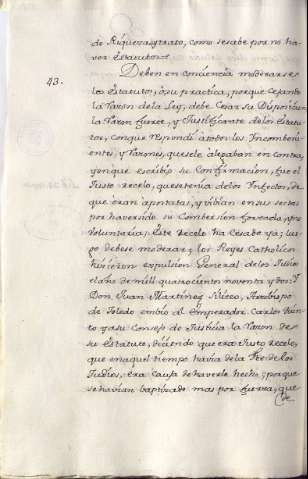 de Riqueza, y trato, como se sabe por no ha
ver estatutos.
43. Deben en conciencia moderarse
los estatutos, ó su practica, porque cesando
la razon de la Ley, debe cesar su Disposicion
la razon fuerte, y justificante de los estatu
tos, con que respondi a todos los Incombeni
entes, y razones, que se le alegaban en contra,
y on que escribio su Confirmacion, fue el
justo recelo, que se tenia de los Infectos, de
que eran apostatas, y vivian en sus sectas
por haver sido su Combersion forzada, y no
voluntaria; Este recelo ha cesado ya; lue
go debese moderar; los Reyes Catholicos
hicieron expulsion General de los Judios
el año de mill quatrocientos noventa y dos: Y
Don Juan Martinez Siliceo, Arzobispo
de Toledo embio al Emperador Carlos Quin
to y a su Consejo de Justicia la razon de
su estatuto, diciendo que era justo recelo,
que en aquel tiempo havia de la Fee de los
Judios, era causa de haverle hecho; porque
se havian baptizado mas por fuerza, que
de